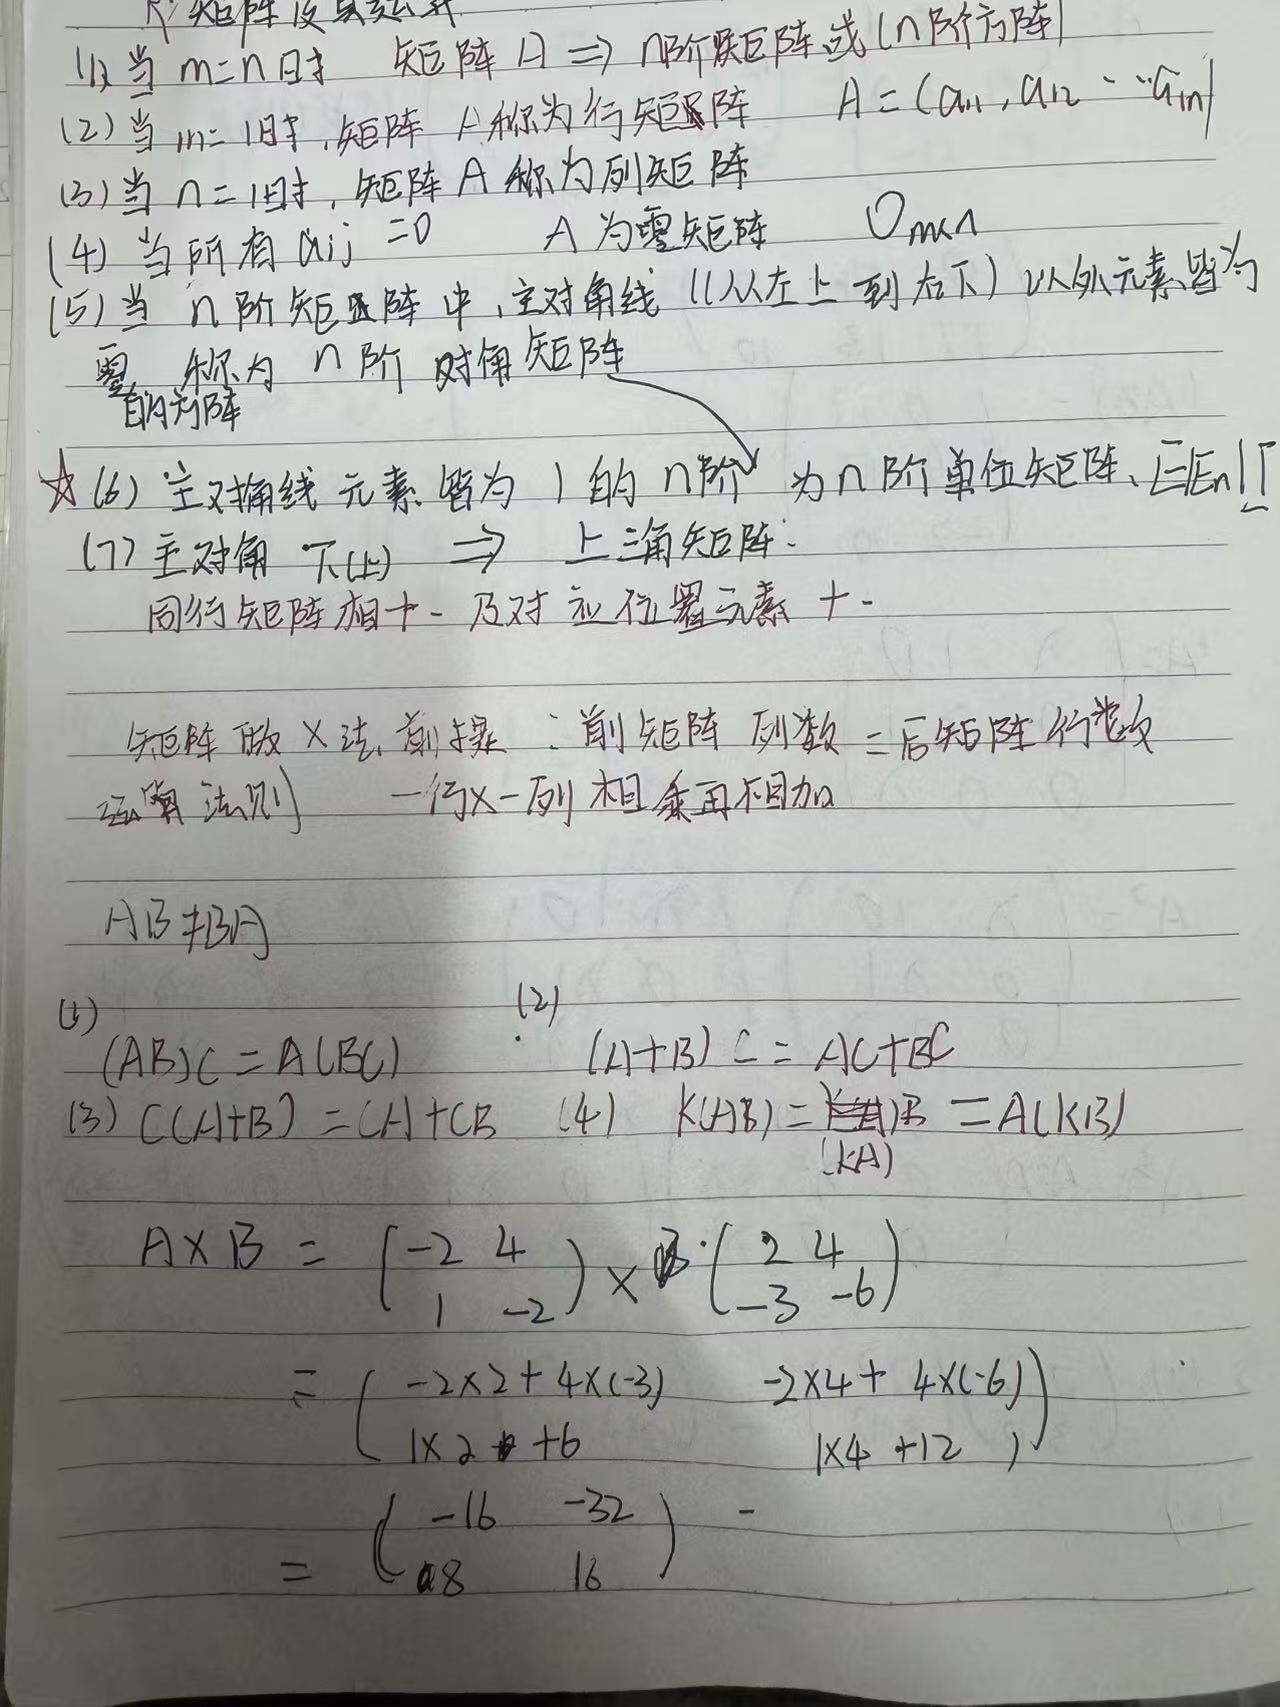 矩阵及其运算
(1) 当 m=n时 矩阵 A ⇒ n阶矩阵或(n阶方阵)
(2) 当 m=1时,矩阵 A称为行矩阵 A=(a11, a12 ... a1n)
(3) 当 n=1时,矩阵 A 称为列矩阵
(4) 当所有 aij =0 A 为零矩阵 Om×n
(5) 当 n 阶矩阵中,主对角线 ((从左上到右下) 以外元素皆为
零 称为 n 阶 对角矩阵
的方阵
☆(6) 主对角线 元素 皆为 1 的 n阶 为 n 阶单位矩阵、E(En) I
(7) 主对角 下(上) ⇒ 上三角矩阵.
同行矩阵相+- 乃对应位置元素 +-
矩阵做×法,前提:前矩阵 列数 =后矩阵 行数
运算法则 一行×一列 相乘再相加
AB≠BA
(1) (2)
(AB)C = A(BC) (A+B) C = AC+BC
(3) C(A+B) = CA+CB (4) K(AB) = B = A(KB)
(kA)
A×B = (-2 4 ) × (2 4 )
1 -2 -3 -6
= ( -2×2+4×(-3) -2×4+ 4×(-6) )
1×2 +6 1×4 +12
= ( -16 -32 ) -
8 16